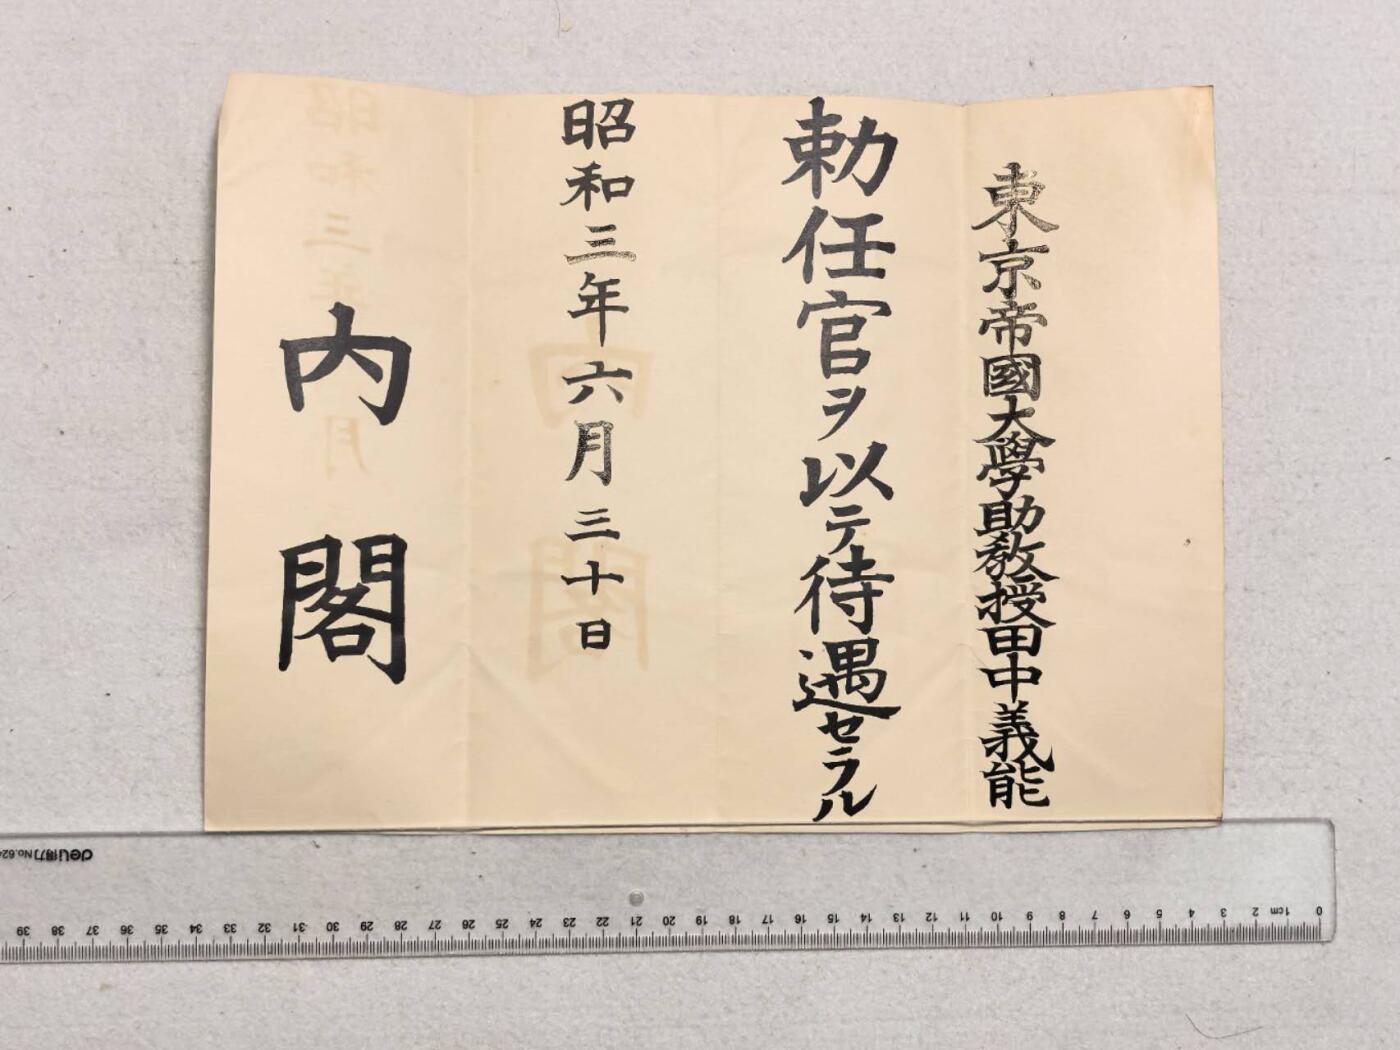 東京帝國大學助教授田中義能
勅任官ヲ以テ待遇セラル
昭和三年六月三十日
内閣
deli 得力 No.624
0 1cm 2 3 4 5 6 7 8 9 10 11 12 13 14 15 16 17 18 19 20 21 22 23 24 25 26 27 28 29 30 31 32 33 34 35 36 37 38 39